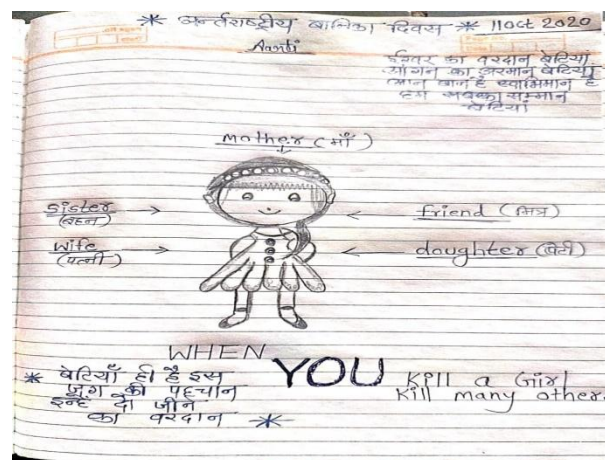 * अन्तर्राष्ट्रीय बालिका दिवस * 11 Oct 2020
ईश्वर का वरदान बेटियां
आंगन का अरमान बेटियां
आन बान है स्वाभिमान है
हम सबका सम्मान
बेटियां
mother (माँ)
Sister
(बहन)
friend (मित्र)
wife
(पत्नी)
daughter (बेटी)
WHEN
YOU
Kill a Girl
Kill many other
* बेटियाँ ही है इस
जुग की पहचान
इन्हें दो जीने
का वरदान *